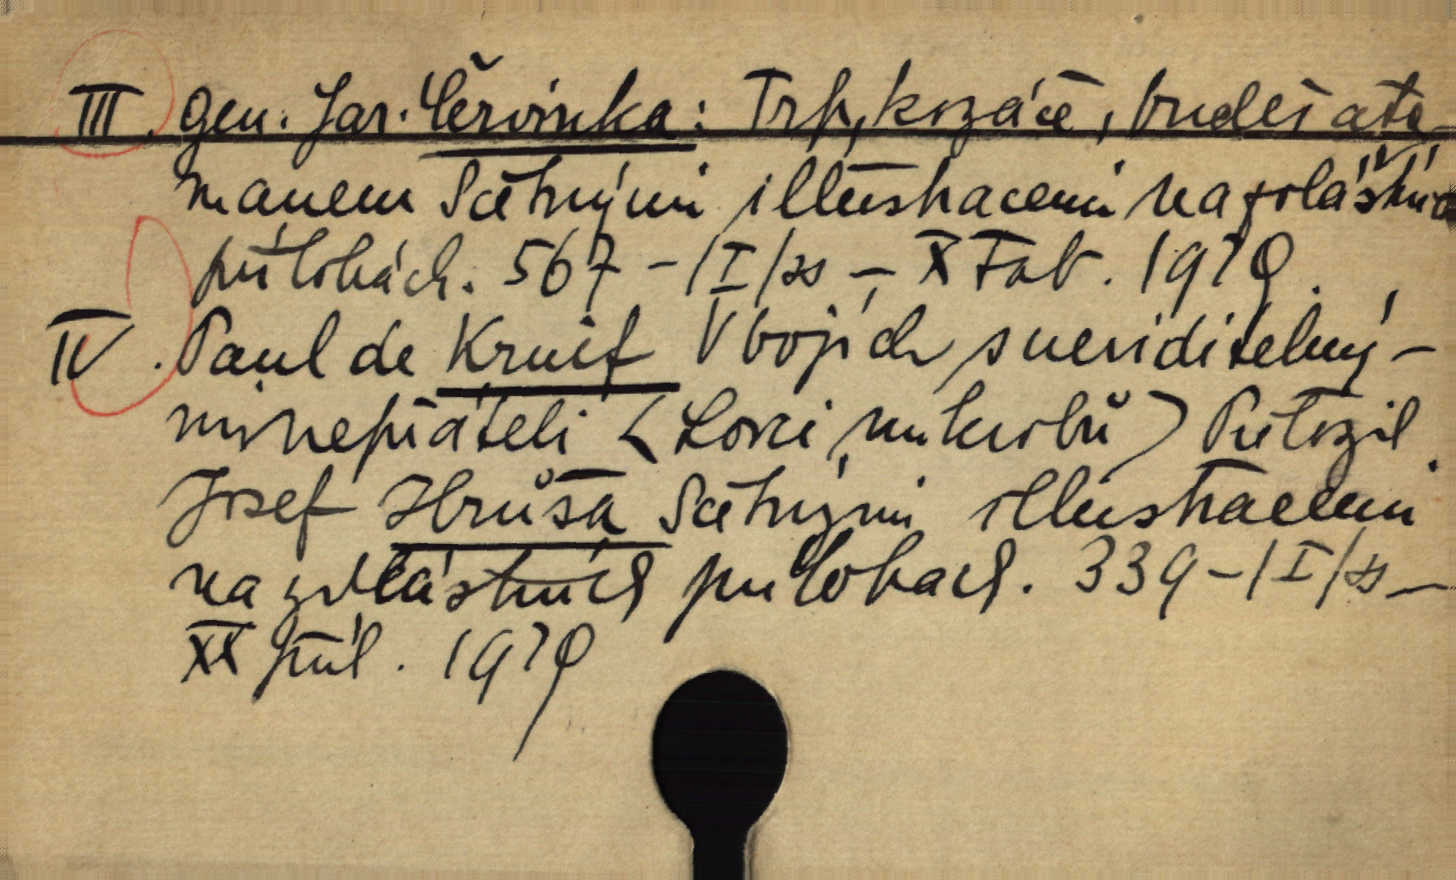 III. Gen. Jar. Červinka: Trp, kozáče, budeš ata-
manem S četnými illustracemi na zvláštních
přílohách. 567-(I)/ss - X Tab. 1929.
IV. Paul de Kruif V bojích s neviditelný-
mi nepřáteli (Lovci mikrobů) Přeložil
Josef Hrůša S četnými illustracemi
na zvláštních přílohách. 339-(I)/ss-
XX příl. 1929